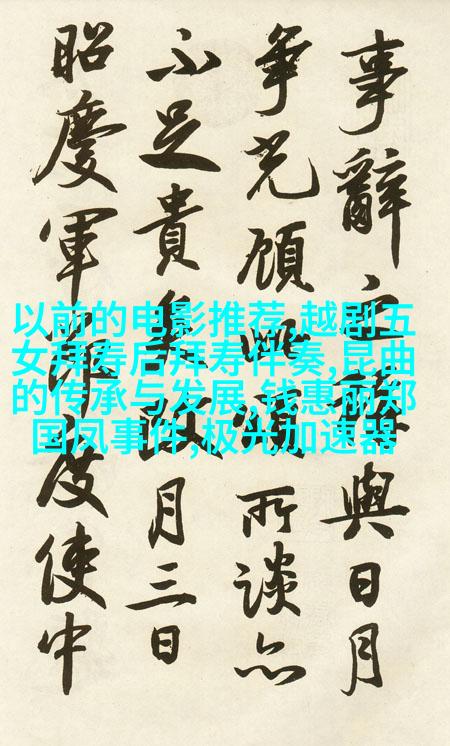 事辭與日月
爭光顧所談亦
不足貴矣月三日
昭慶軍節度使中
以前的电影推荐,越剧五
女拜寿后拜寿伴奏,昆曲
的传承与发展,钱惠丽郑
国凤事件,极光加速器